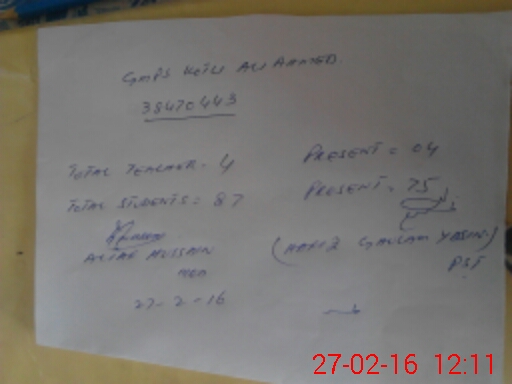 GMPS KOTLI ALI AHMED.
38470443
TOTAL TEACHER = 4 PRESENT = 04
TOTAL STUDENTS = 87 PRESENT = 75
ALTAF HUSSAIN (HAFIZ GHULAM YASIN)
MEA PST
27-2-16
27-02-16 12:11